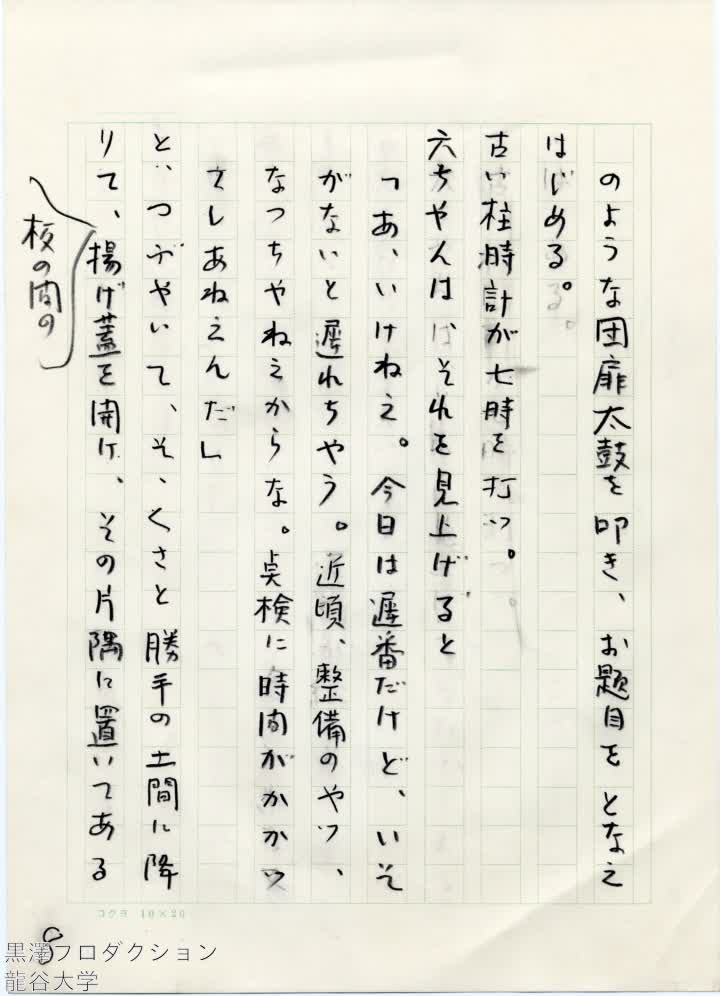 のような団扉太鼓を叩き、お題目をとなえ
はじめる。
古い柱時計が七時を打つ。
六ちやんはそれを見上げると
「あ、いけねえ。今日は遅番だけど、いそ
がないと遅れちやう。近頃、整備のやつ、
なつちやねえからな。点検に時間がかかつ
てしあねえんだ」
と、つぶやいて、そゝくさと勝手の土間に降
りて、揚げ蓋を開け、その片隅に置いてある
板の間の
コクヨ 10×20
8
黒澤プロダクション
龍谷大学